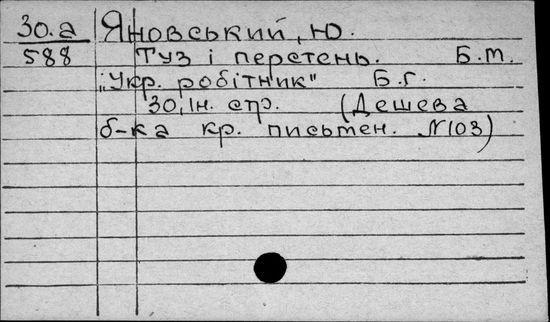 30.а Яновський, Ю.
588 Туз і перстень. Б.м.
„Укр. робітник" Б.г.
30, Ін. стр. (Дешева
б-ка кр. письмен. №103)